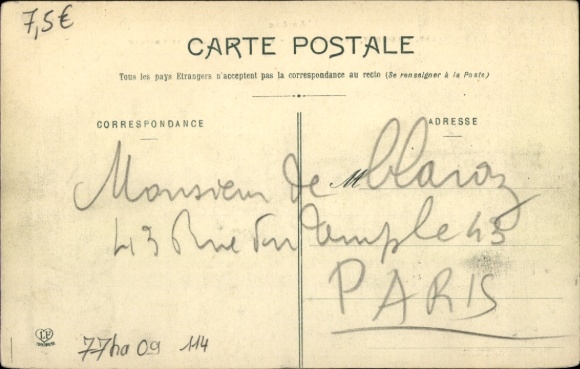 7,5€
CARTE POSTALE
Tous les pays Etrangers n'acceptent pas la correspondance au recto (Se renseigner à la Poste)
CORRESPONDANCE
ADRESSE
M
Monsieur de
43 Rue du Temple 43
PARIS
77ha09 114